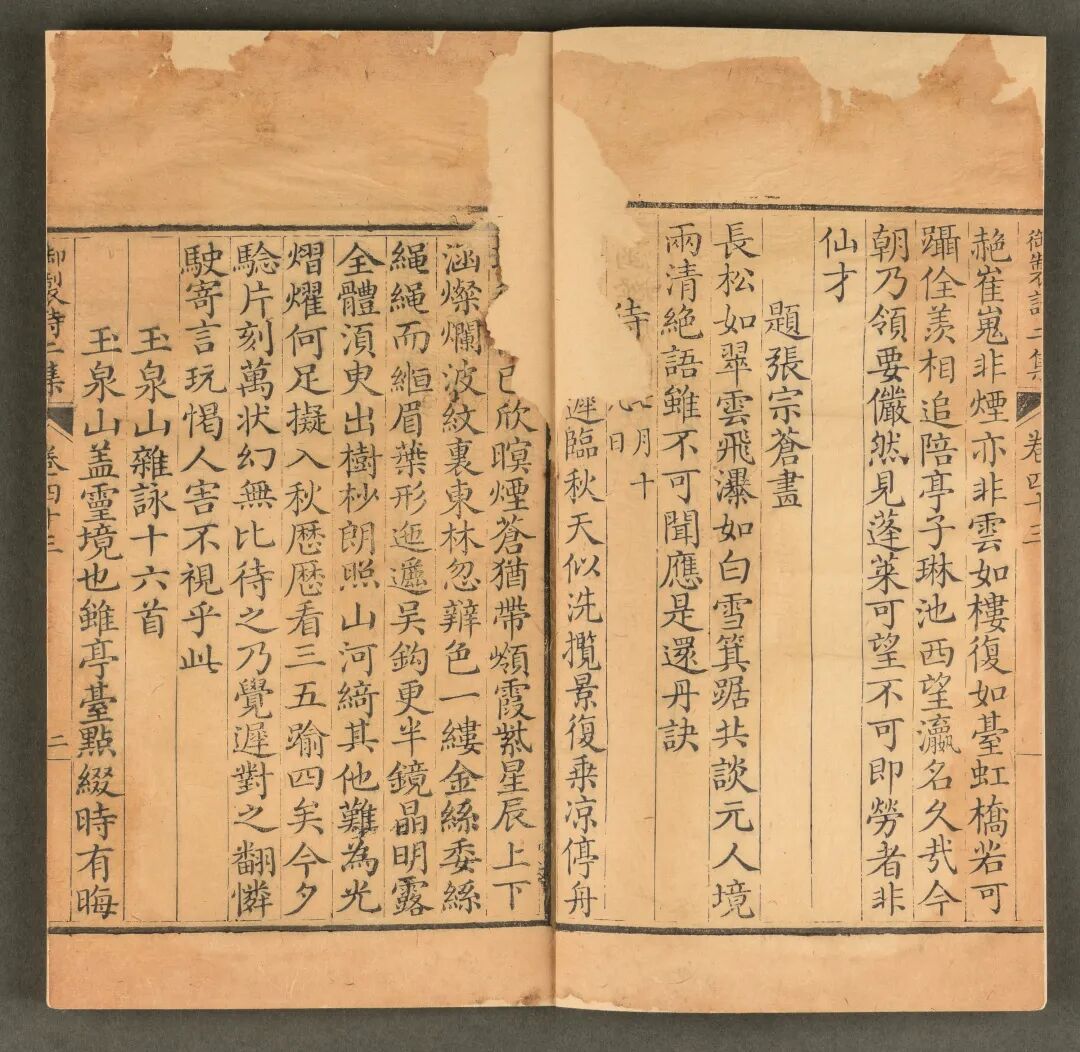 赩崔嵬非煙亦非雲如樓復如臺虹橋若可
躡佺羨相追陪亭子琳池西望瀛名久哉今
朝乃領要儼然見蓬萊可望不可即勞者非
仙才
題張宗蒼畫
長松如翠雲飛瀑如白雪箕踞共談元人境
兩清絕語雖不可聞應是還丹訣
待 月十
日
遲臨秋天似洗攬景復乘凉停舟
已欣暝煙蒼猶帶嶺霞紫星辰上下
涵燦爛波紋裏東林忽辨色一縷金絲委絲
繩繩而縆眉葉形迤邐吳鈎更半鏡晶明露
全體湏臾出樹杪朗照山河綺其他難為光
熠燿何足擬入秋歷歷看三五踰四矣今夕
騐片刻萬狀幻無比待之乃覺遲對之翻憐
駛寄言玩愒人害不視乎此
玉泉山雜詠十六首
玉泉山蓋靈境也雖亭臺點綴時有晦
御製詩二集
卷四十三
二